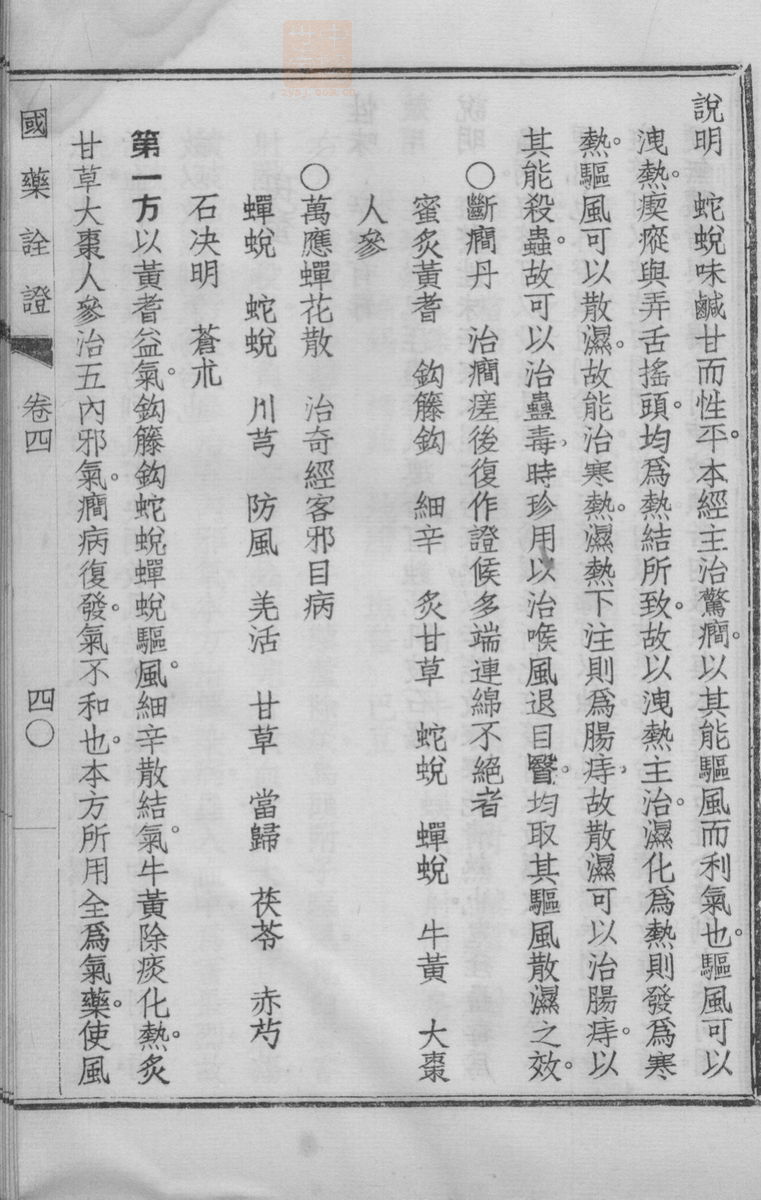 說明　蛇蛻味鹹甘而性平。本經主治驚癇。以其能驅風而利氣也。驅風可以
洩熱。瘈瘲與弄舌搖頭。均爲熱結所致。故以洩熱主治。濕化爲熱則發爲寒
熱。驅風可以散濕。故能治寒熱。濕熱下注則爲腸痔，故散濕可以治腸痔。以
其能殺蟲。故可以治蠱毒，時珍用以治喉風退目瞖。均取其驅風散濕之效。
○斷癇丹　治癇瘥後復作證候多端連綿不絕者
蜜炙黃耆　鈎籐鈎　細辛　炙甘草　蛇蛻　蟬蛻　牛黃　大棗
人參
○萬應蟬花散　治奇經客邪目病
蟬蛻　蛇蛻　川芎　防風　羌活　甘草　當歸　茯苓　赤芍
石決明　蒼朮
第一方以黃耆益氣。鈎籐鈎蛇蛻蟬蛻驅風。細辛散結氣。牛黃除痰化熱。炙
甘草大棗人參治五內邪氣。癇病復發。氣不和也。本方所用全爲氣藥。使風
國藥詮證　卷四　四○